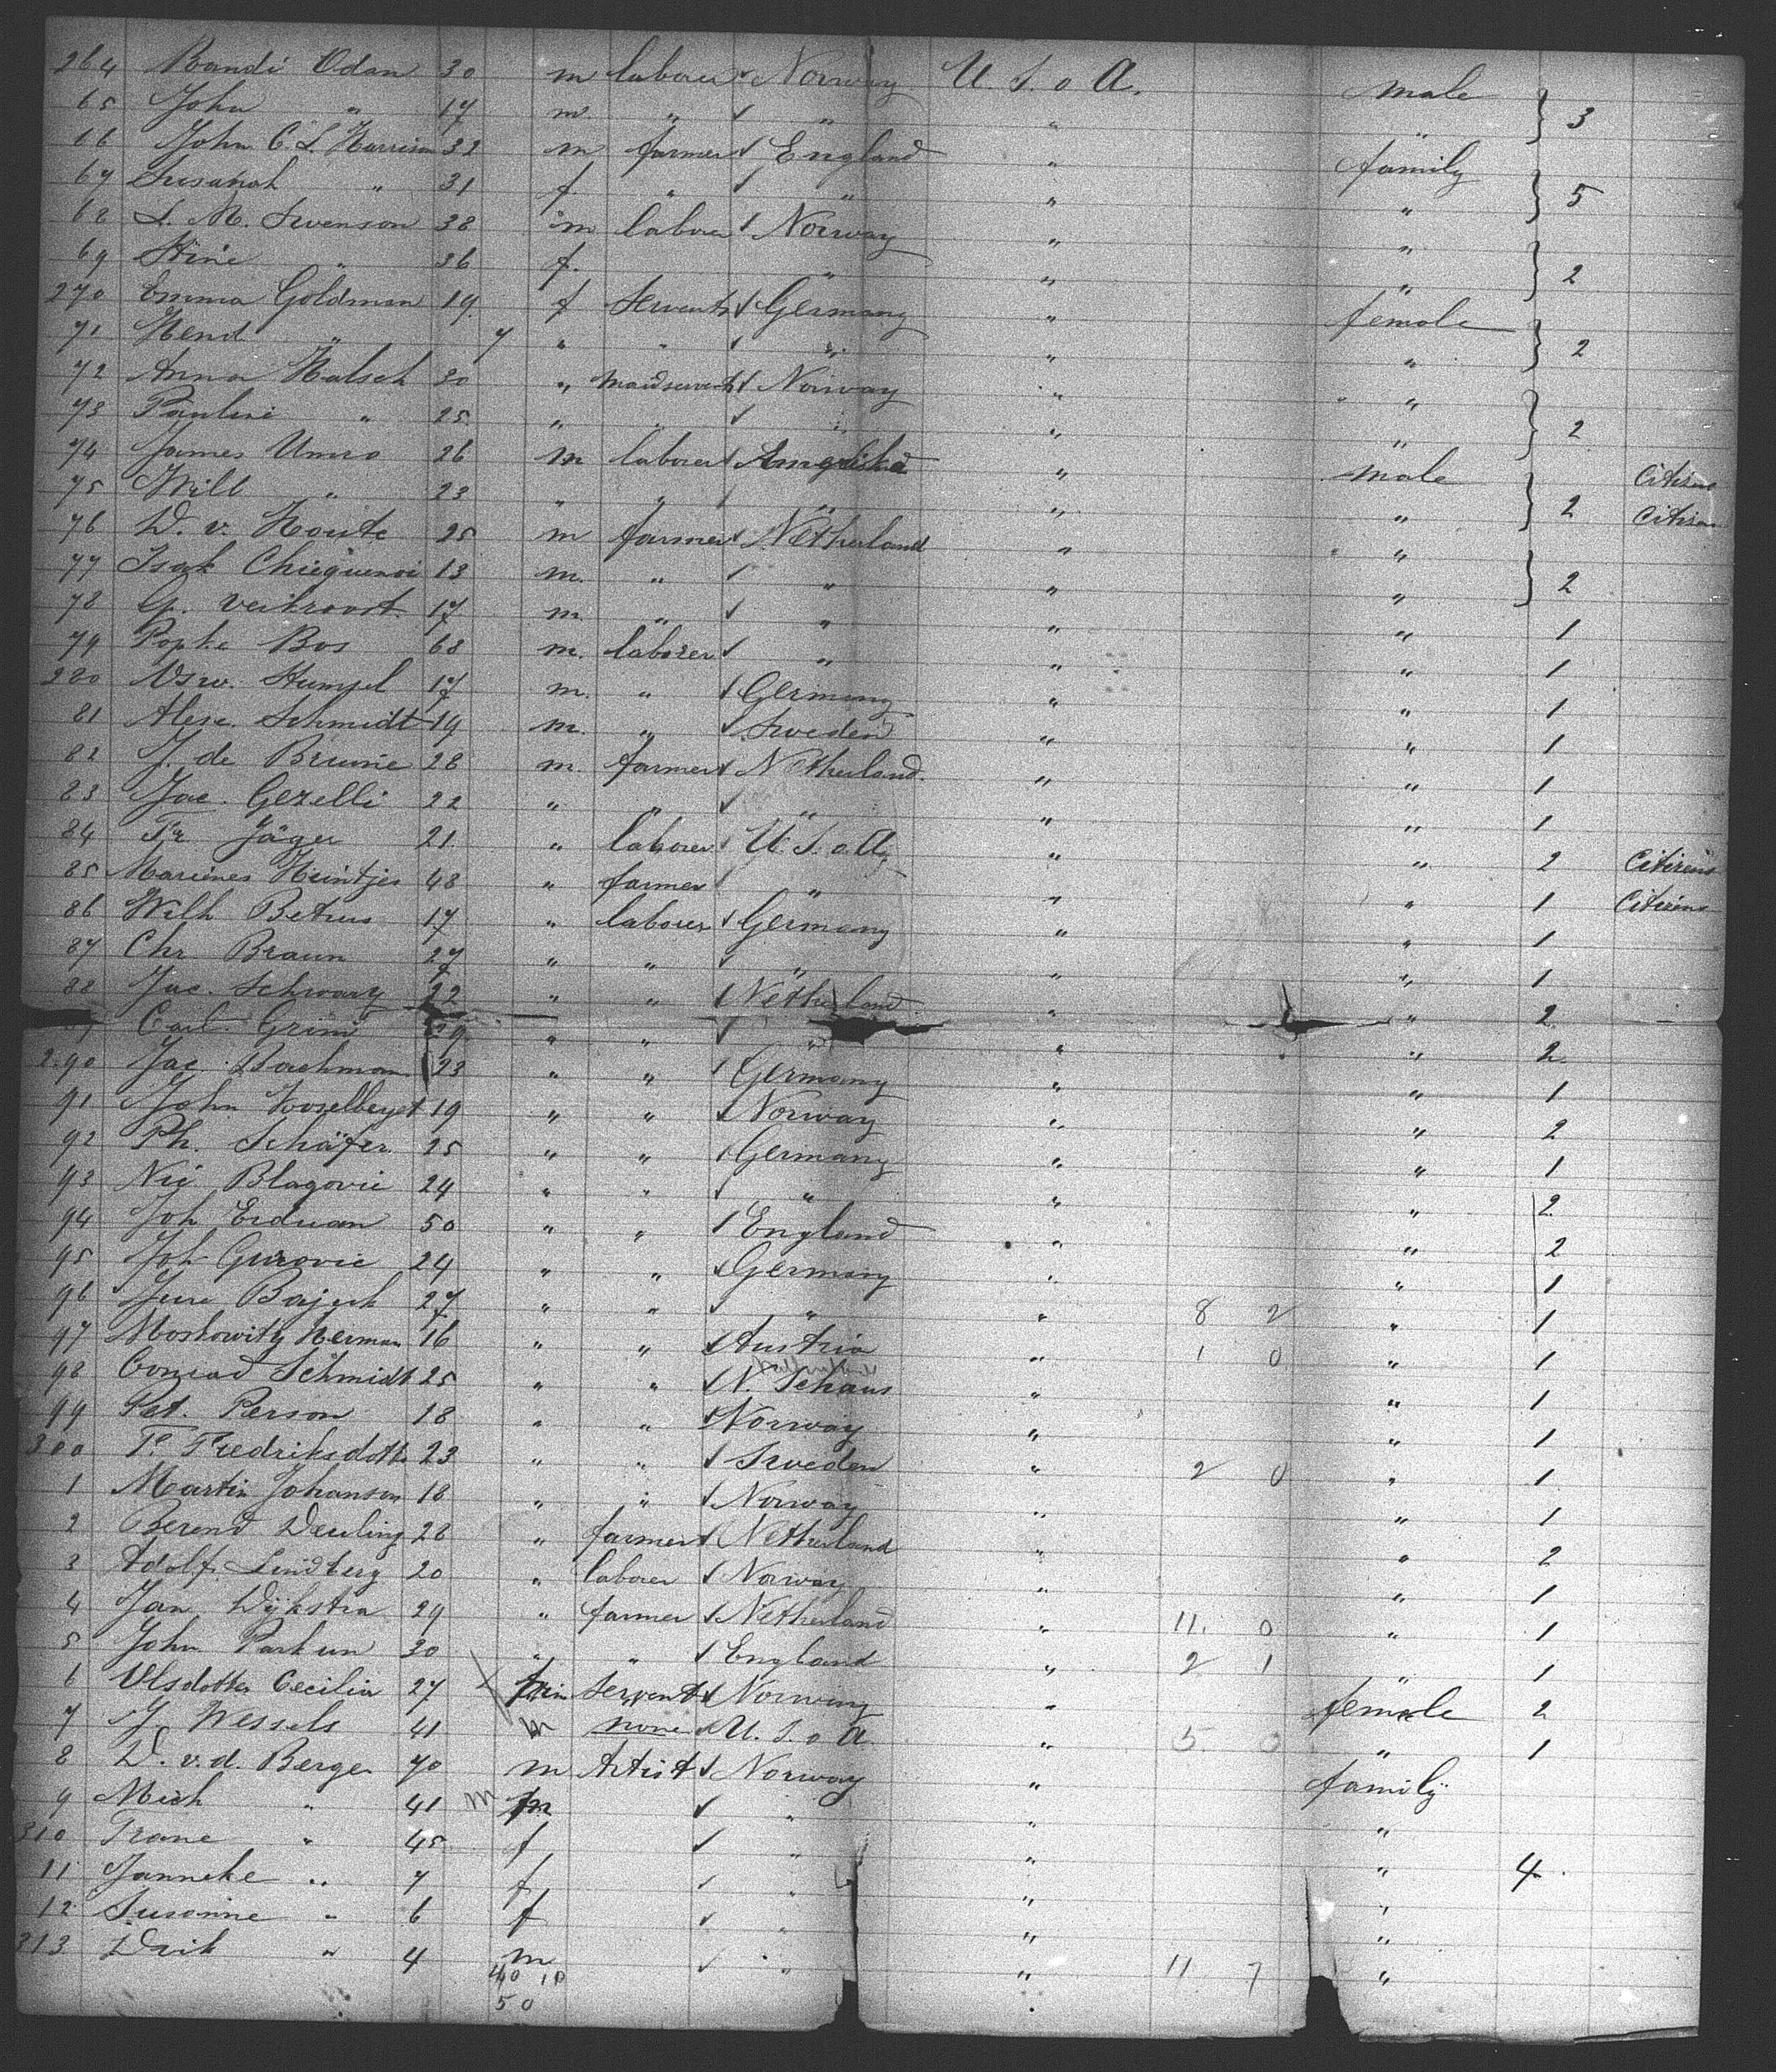 264 Bandi Odan 30 m laborer ✓ Norway U. S. o A. male
65 John " 17 m. " ✓ " " " } 3
66 John C. L. Harrison 32 m farmer ✓ England " family
67 Susanah " 31 f. " ✓ " " " } 5
68 L. M. Swenson 38 m laborer ✓ Norway " "
69 Stine " 36 f. " " " } 2
270 Emma Goldman 19. f Servents ✓ Germany " female
71 Hend " 7 " " ✓ " " " } 2
72 Anna Halsch 30 " maidservents ✓ Norway " "
73 Pauline " 25 " " ✓ " " " } 2
74 James Unros 26 m laborer ✓ " male Citizens
75 Will " 23 " " ✓ " " " } 2 Citizens
76 D. v. Houte 25 m farmer ✓ Netherland " "
77 Isak 13 m. " ✓ " " " } 2
78 G. 17 m. " ✓ " " " 1
79 Popke Bos 68 m. laborer ✓ " " " 1
280 Osw. Humpel 17 m. " ✓ Germany " " 1
81 Alex. Schmidt 19 m. " ✓ Sweden " " 1
82 J. de Bruine 28 m. farmer ✓ Netherland. " " 1
83 Jac. Gezelli 22 " " ✓ " " " 1
84 Fr Jäger 21. " laborer ✓ U. S. o. A. " " 2 Citizens
85 Marines Heintjes 48 " farmer ✓ " " " 1 Citizens
86 Wilh Betrus 17 " laborer ✓ Germany " " 1
87 Chr. Braun 27 " " ✓ " " " 1
88 Jac. Schwarz 22 " " ✓ Netherland " " 2
89 Carl Grim 29 " " ✓ " " " 2.
290 Jac. Bachman 23 " " ✓ Germany " " 1
91 John 19 " " ✓ Norway " " 2
92 Ph. Schäfer. 25 " " ✓ Germany " " 1
93 Nic Blagovic 24 " " ✓ " " " 2.
94 Joh Erduan 50 " " ✓ England " " 2
95 Joh Gurovic 24 " " ✓ Germany " " 1
96 Jure Bajuk 27 " " ✓ " " 8 2 " 1
97 Moskowitz Herman 16 " " ✓ Austria " 1 0 " 1
98 Conrad Schmidt 25 " " ✓ N. Schaus " " 1
99 Pet. Person 18 " " ✓ Norway " " 1
300 P. Fredriksdottr 23 " " ✓ Sweden " 2 0 " 1
1 Martin Johanson 18 " " ✓ Norway " " 1
2 Berend Deuling 28 " farmer ✓ Netherland " " 2
3 Adolf. Lindberg 20 " laborer ✓ Norway " " 1
4 Jan Dijkstra 29 " farmer ✓ Netherland " 11. 0 " 1
5 John Parkun 30 " " ✓ England " 2 1 " 1
6 Olsdotter Cecilia 27 Servent ✓ Norway " female 2
7 J Wessels 41 m none ✓ U. S. o A. " 5 0 " 1
8 D. v. d. Berge 70 m Artist ✓ Norway " family
9 Mich " 41 m ✓ " " "
310 Trane " 45 f ✓ " " " 4.
11 Janneke " 7 f ✓ " " "
12 Susanne " 6 f ✓ " " "
313 Drik " 4 m ✓ " " 11 7 "
40 10
50